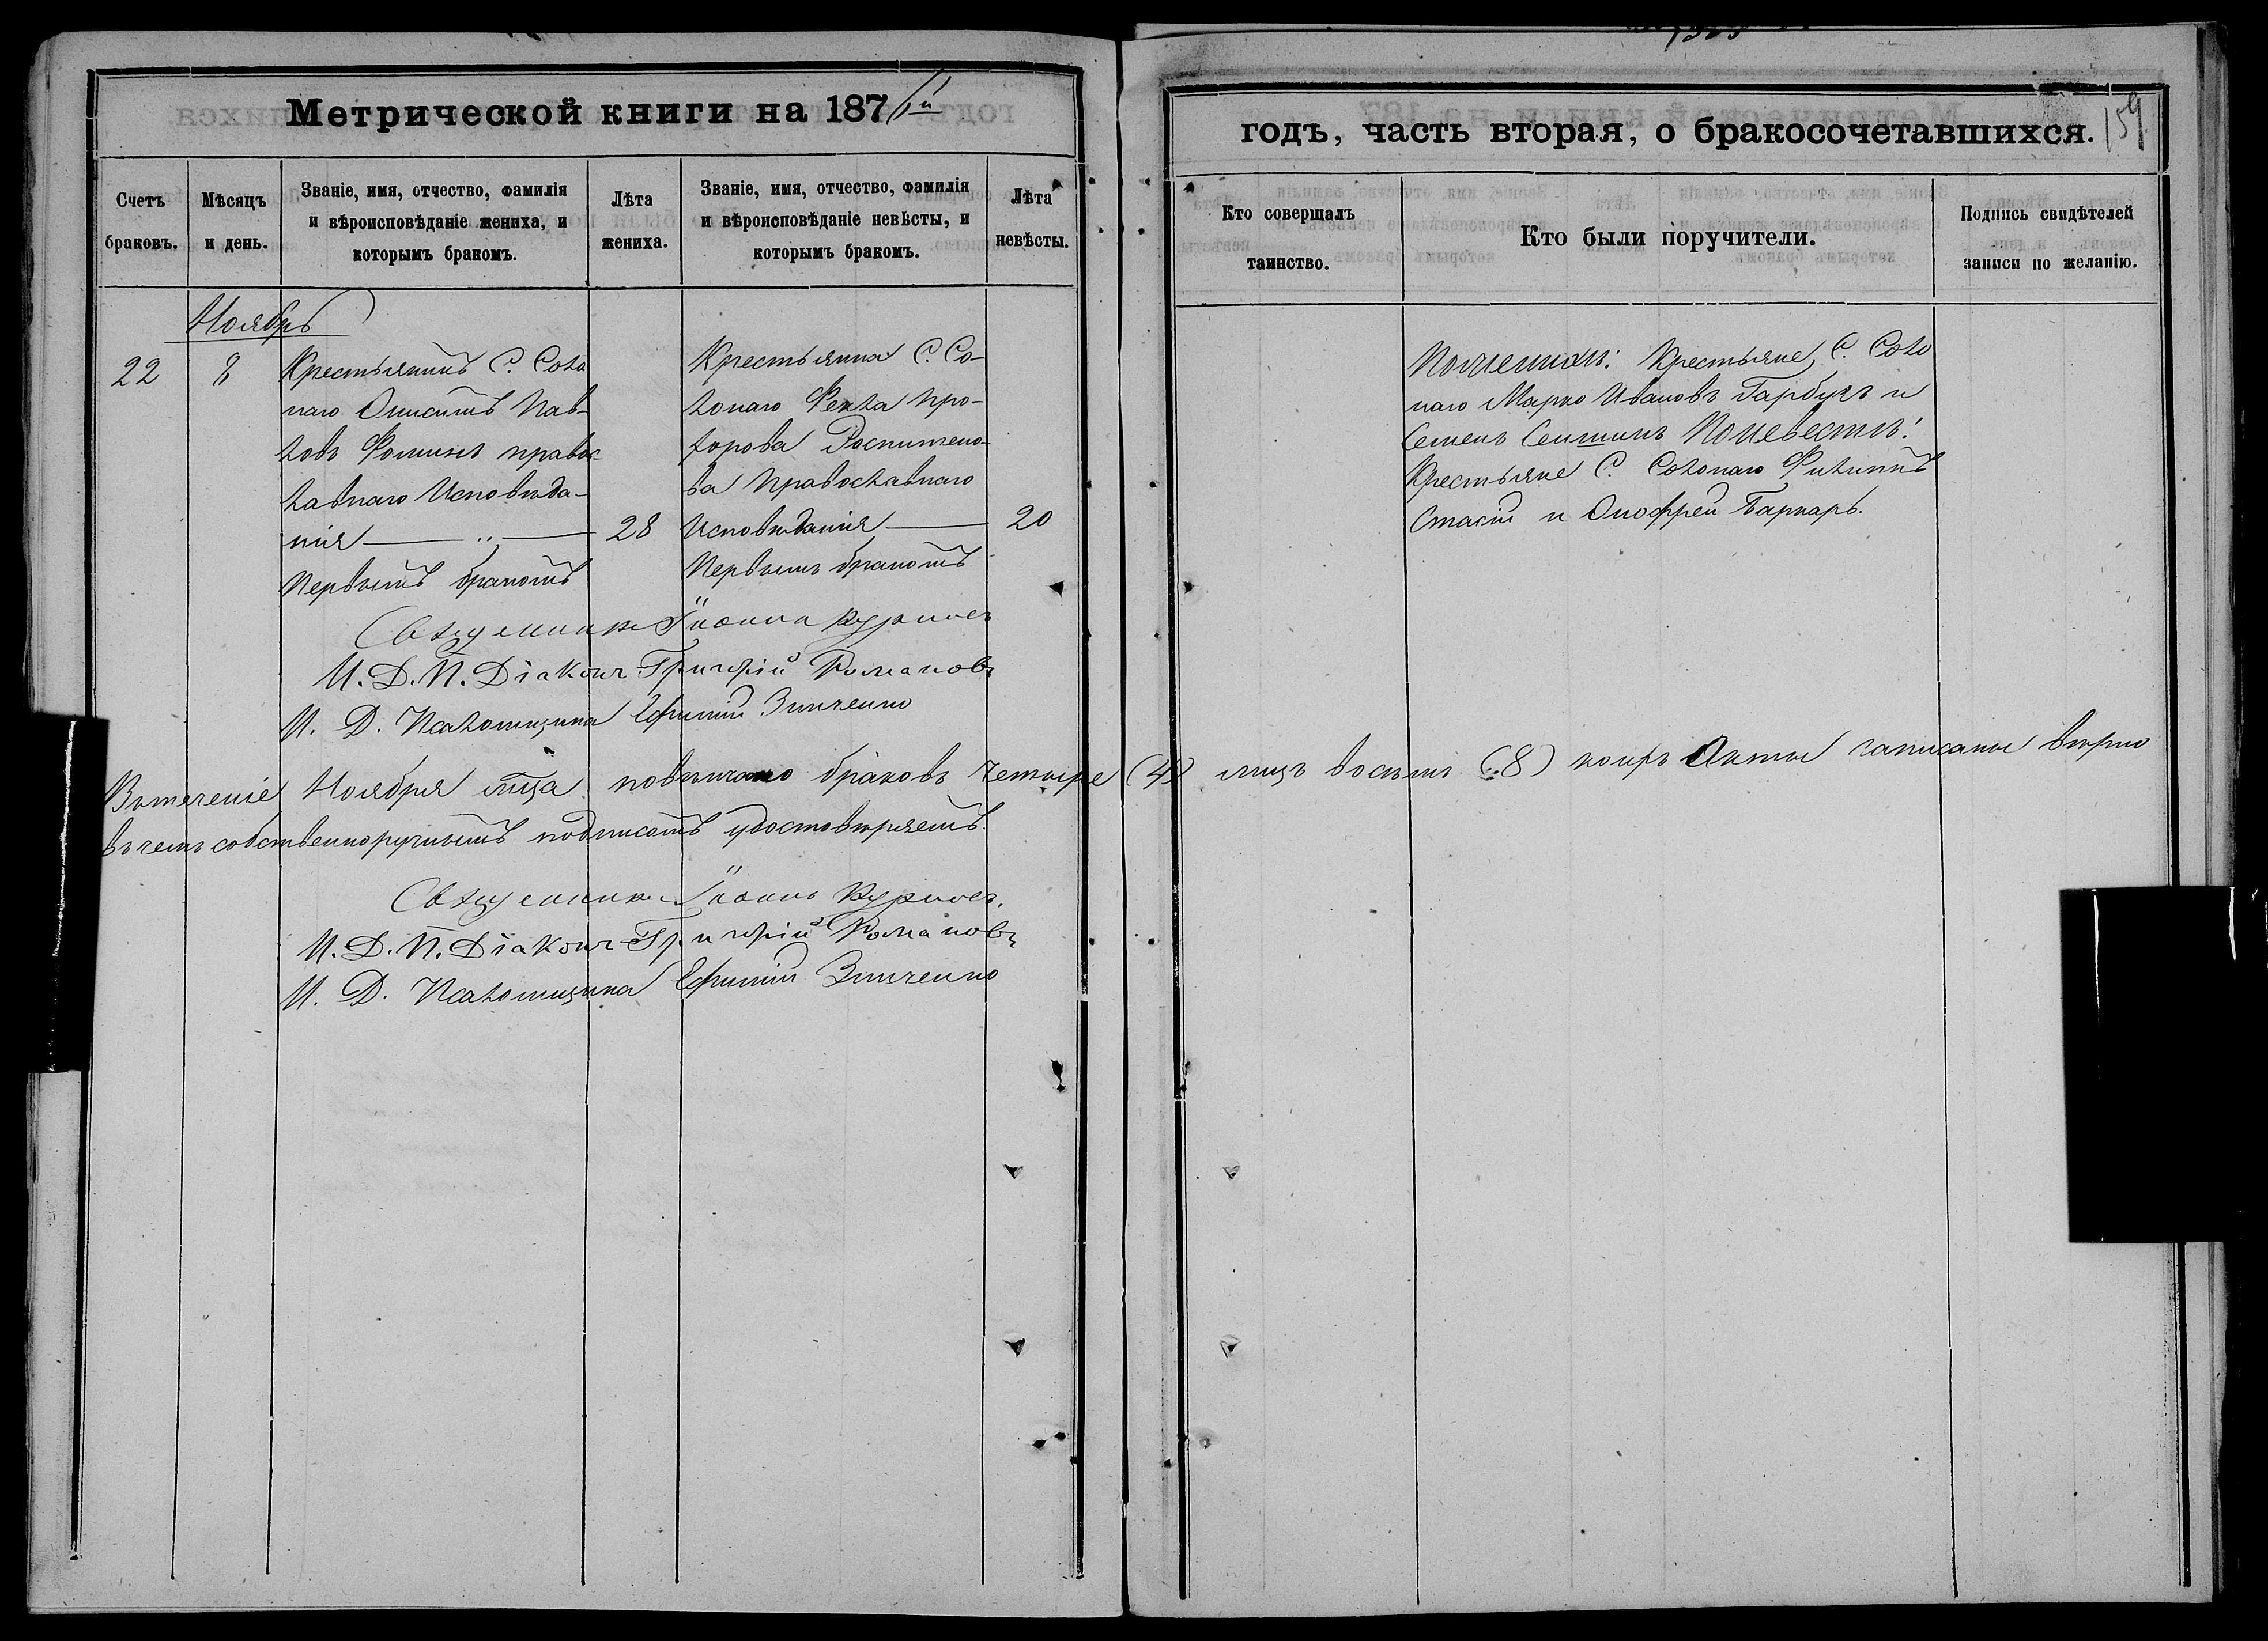 Метрической книги на 187
годъ, часть вторая, о бракосочетавшихся.
159
Счетъ браковъ.
Мѣсяцъ и день.
Званіе, имя, отчество, фамилія и вѣроисповѣданіе жениха, и которымъ бракомъ.
Лѣта жениха.
Званіе, имя, отчество, фамилія и вѣроисповѣданіе невѣсты, и которымъ бракомъ.
Лѣта невѣсты.
Кто совершалъ таинство.
Кто были поручители.
Подпись свидѣтелей записи по желанію.
Ноябрь
22
8
Крестьянинъ С. Соло
наго Онисимъ Пав-
ловъ Фоминъ правос
лавнаго Исповѣда-
нія
Первымъ бракомъ
28
Крестьянка С. Со-
лонаго Фекла Про-
хорова
ва Православнаго
Исповѣданія
Первымъ бракомъ
20
По женихѣ: Крестьяне С. Соло
наго Марко Ивановъ Гарбузъ и
Семенъ По невестѣ:
Крестьяне С. Солонаго Филиппъ
Стасій и Онофрей Барнарь.
Священникъ Іоаннъ
И. Д. П. Діаконъ Григорій Романовъ
И. Д. Псаломщика Ефимій Зинченко
Въ теченіе Ноября мца повѣнчано браковъ четыре (4) лицъ восемь (8) коихъ Акты записаны вѣрно
въ чемъ собственноручнымъ подписомъ удостовѣряемъ.
Священникъ Іоаннъ
И. Д. П. Діаконъ Григорій Романовъ
И. Д. Псаломщика Ефимій Зинченко